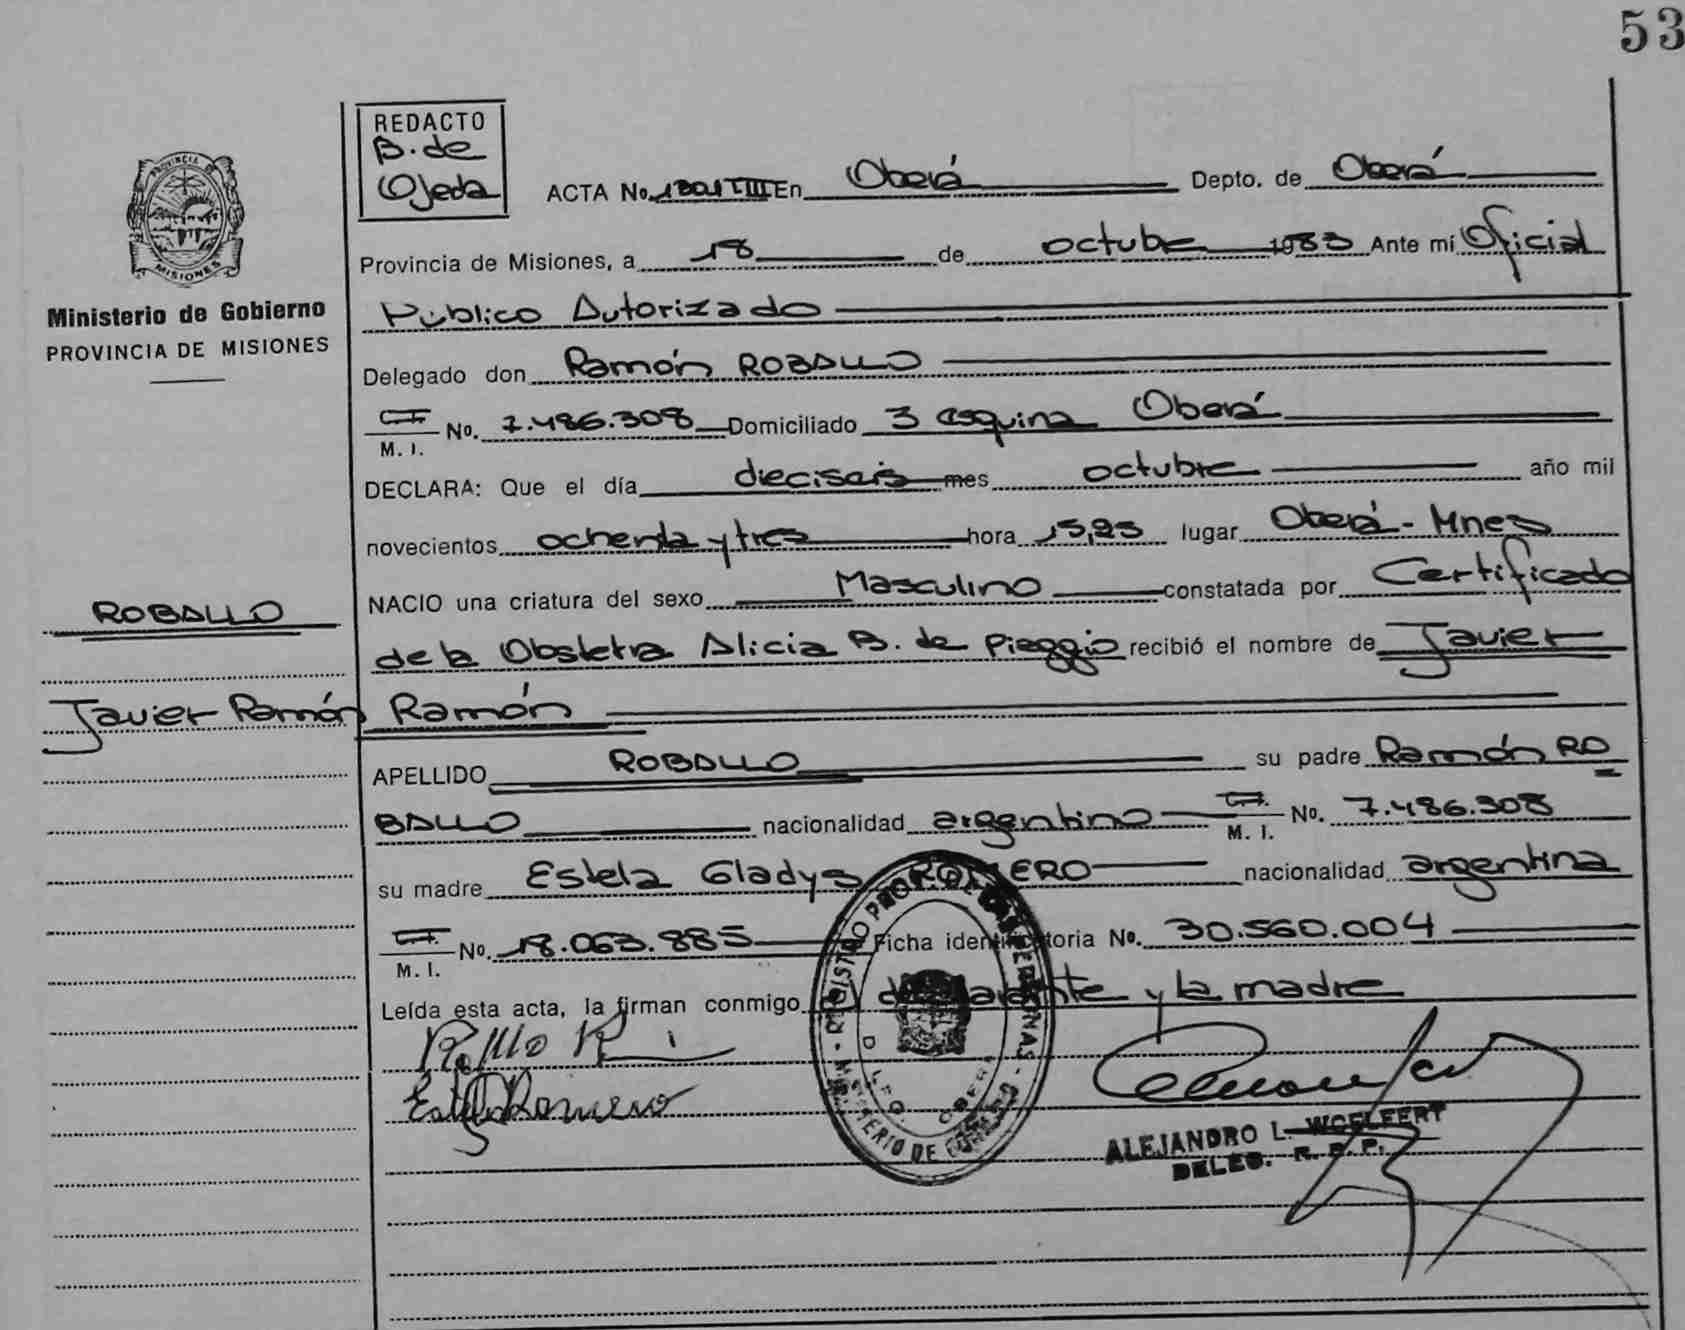 53
REDACTO
B. de
Ojeda
ACTA No. En Oberá Depto. de Oberá
Provincia de Misiones, a 18 de octubre 1983 Ante mí Oficial
Público Autorizado
Delegado don Ramón ROBALLO
C.I. M. I. No. 7.486.308 Domiciliado 3 esquina Oberá
DECLARA: Que el día dieciseis mes octubre año mil
novecientos ochenta y tres hora 15,25 lugar Oberá - Mnes
NACIO una criatura del sexo Masculino constatada por Certificado
de la Obstetra Alicia B. de Piaggio recibió el nombre de Javier
Ramón
APELLIDO ROBALLO su padre Ramón RO
BALLO nacionalidad argentino C.I. M. I. No. 7.486.308
su madre Estela Gladys ROMERO nacionalidad argentina
C.I. M. I. No. 18.063.885 Ficha identificatoria No. 30.560.004
Leída esta acta, la firman conmigo declarante y la madre
Romero
ALEJANDRO L. WOELFERT
DELEG. R. P. P.
PROVINCIA DE
MISIONES
Ministerio de Gobierno
PROVINCIA DE MISIONES
ROBALLO
Javier Ramón